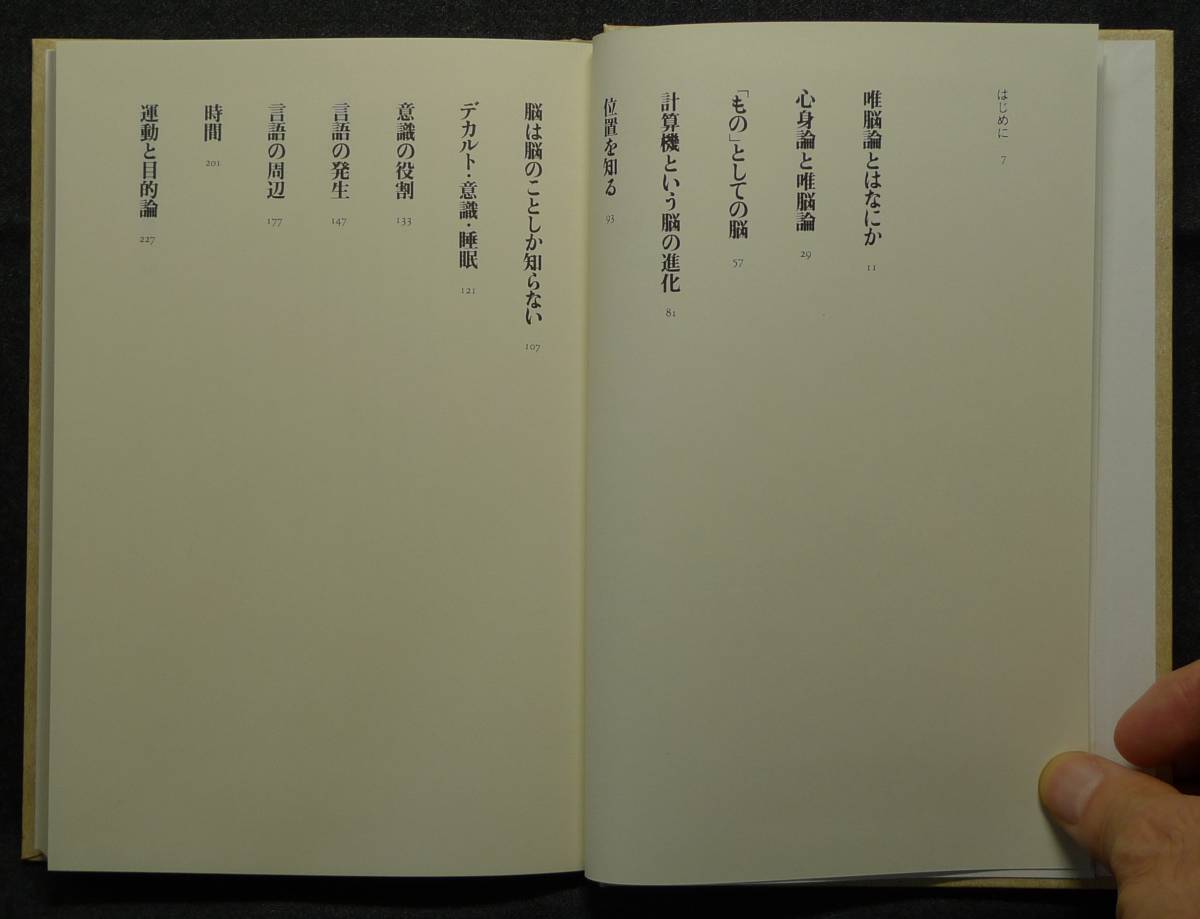 はじめに 7
唯脳論とはなにか 11
心身論と唯脳論 29
「もの」としての脳 57
計算機という脳の進化 81
位置を知る 93
脳は脳のことしか知らない 107
デカルト・意識・睡眠 121
意識の役割 133
言語の発生 147
言語の周辺 177
時間 201
運動と目的論 227